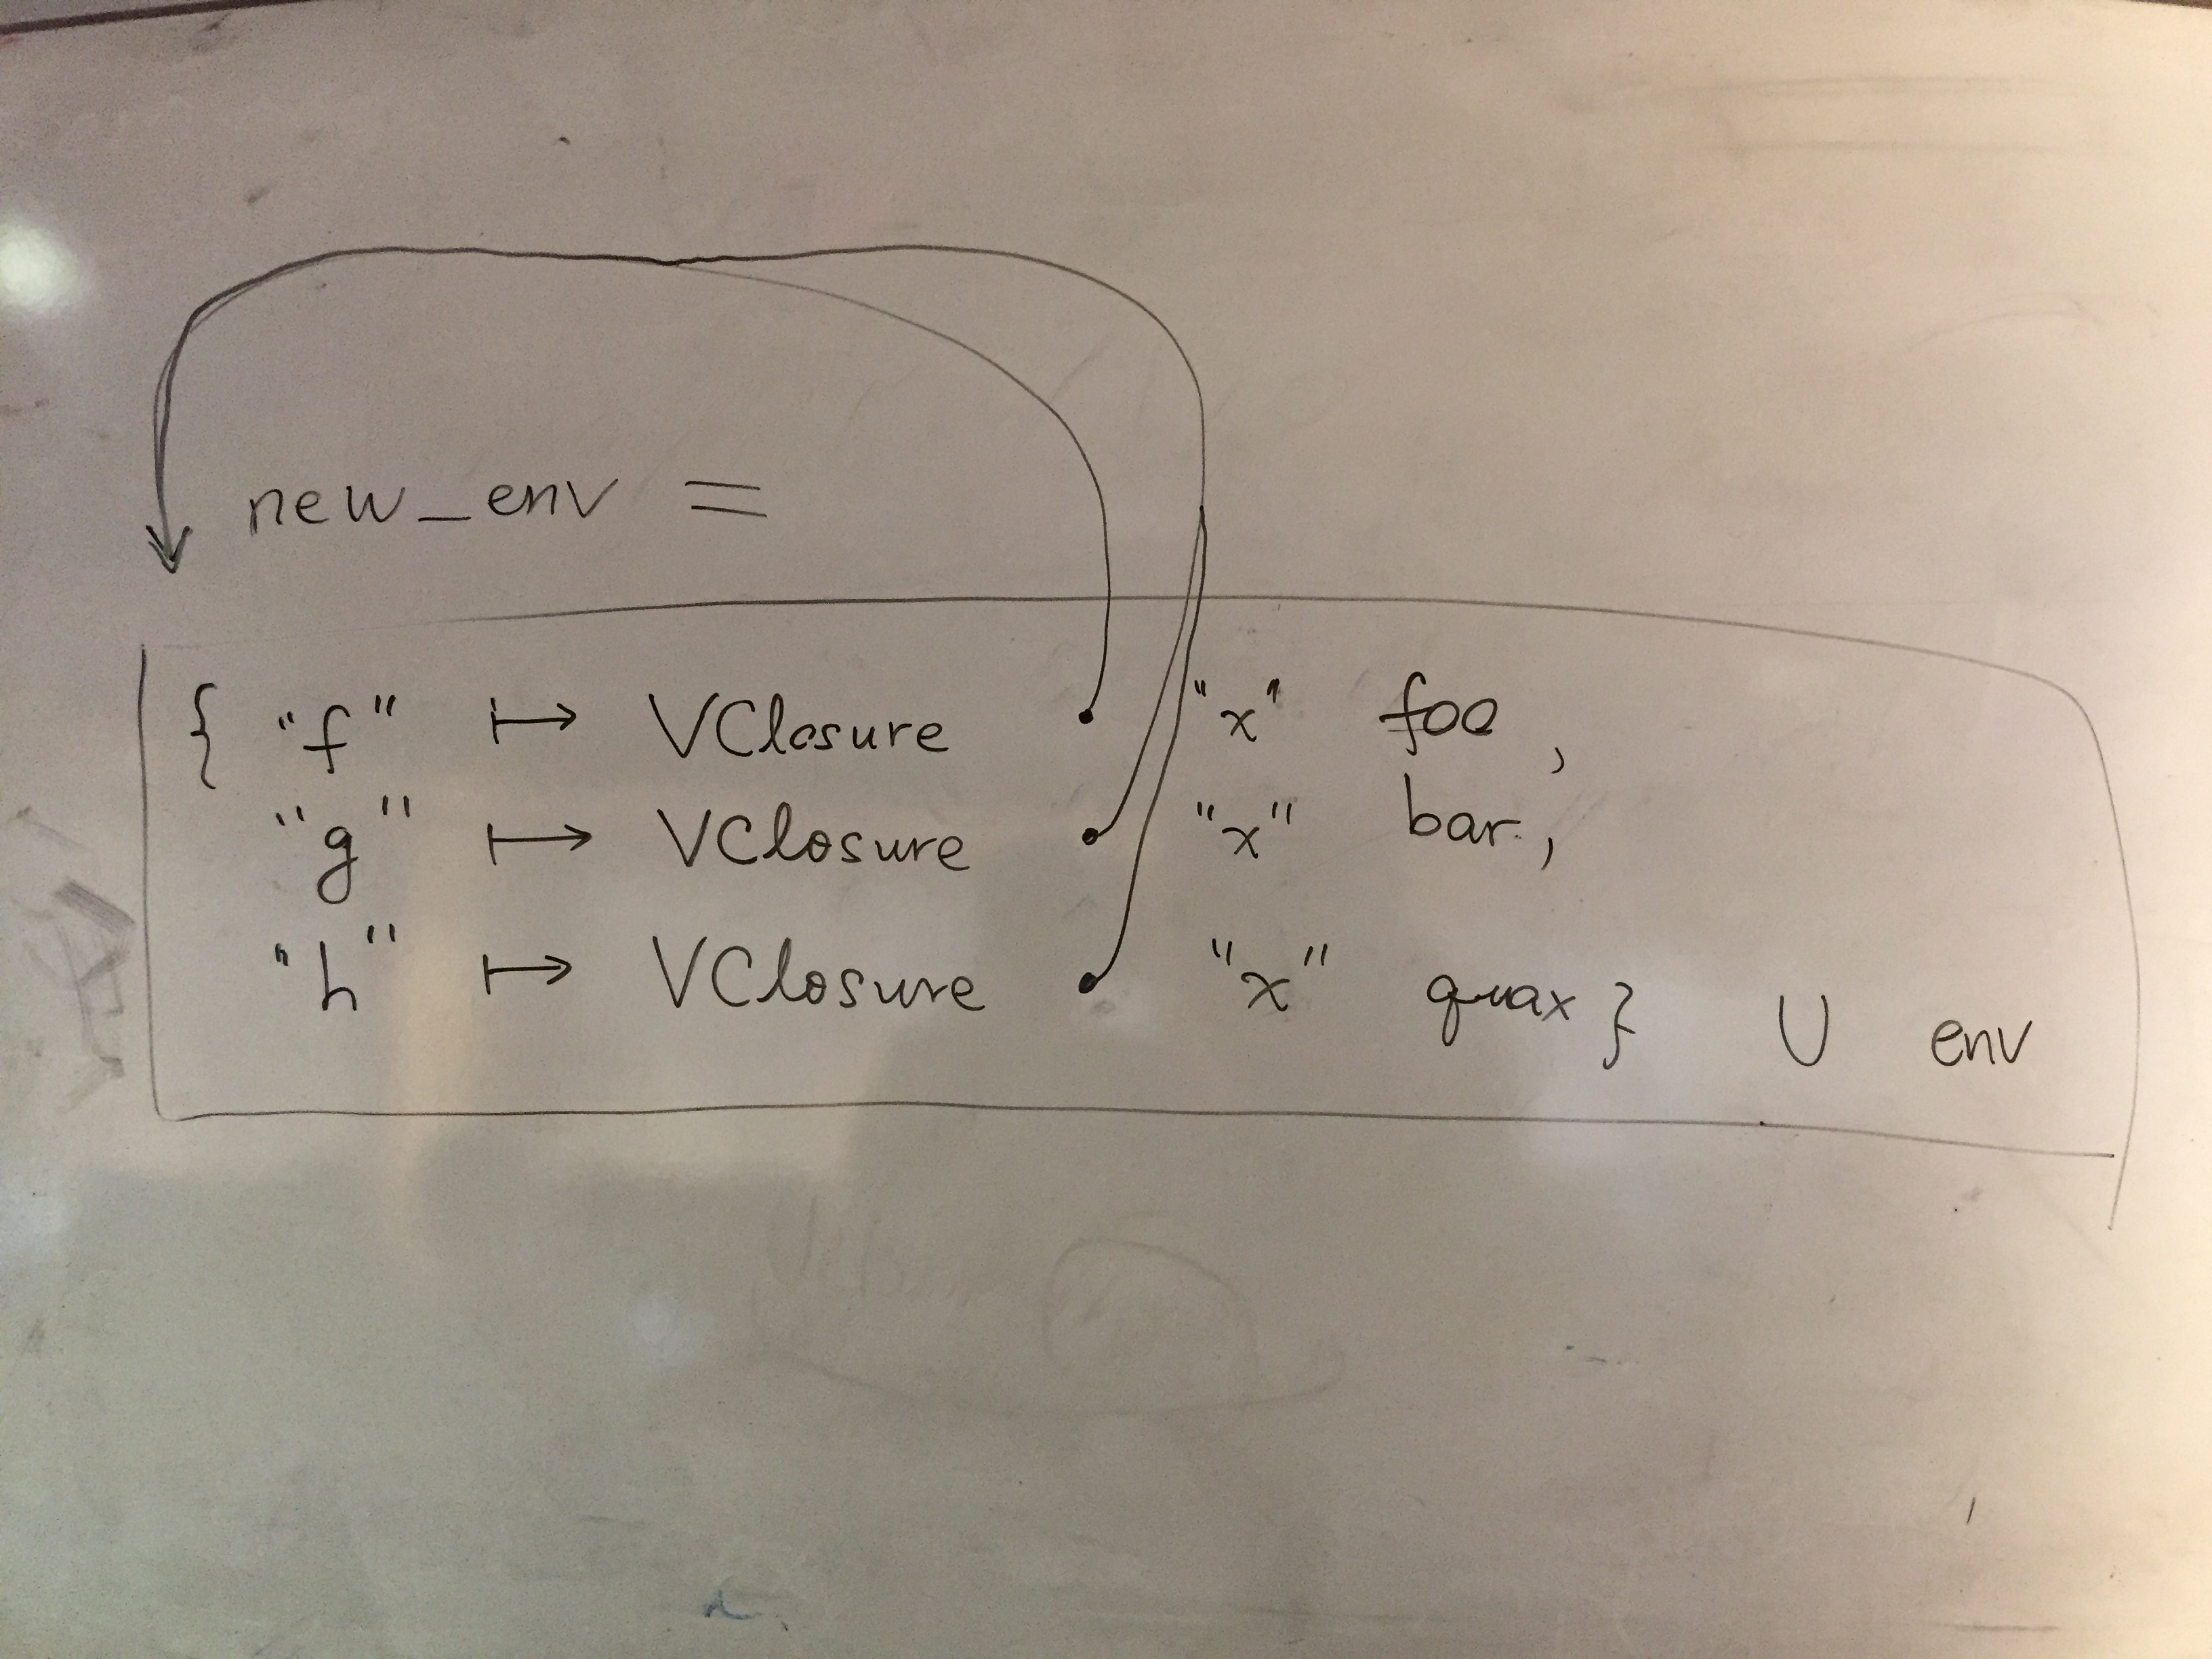 new_env =
{ "f" ↦ VClosure • "x" foo,
"g" ↦ VClosure • "x" bar,
"h" ↦ VClosure • "x" quax } ∪ env